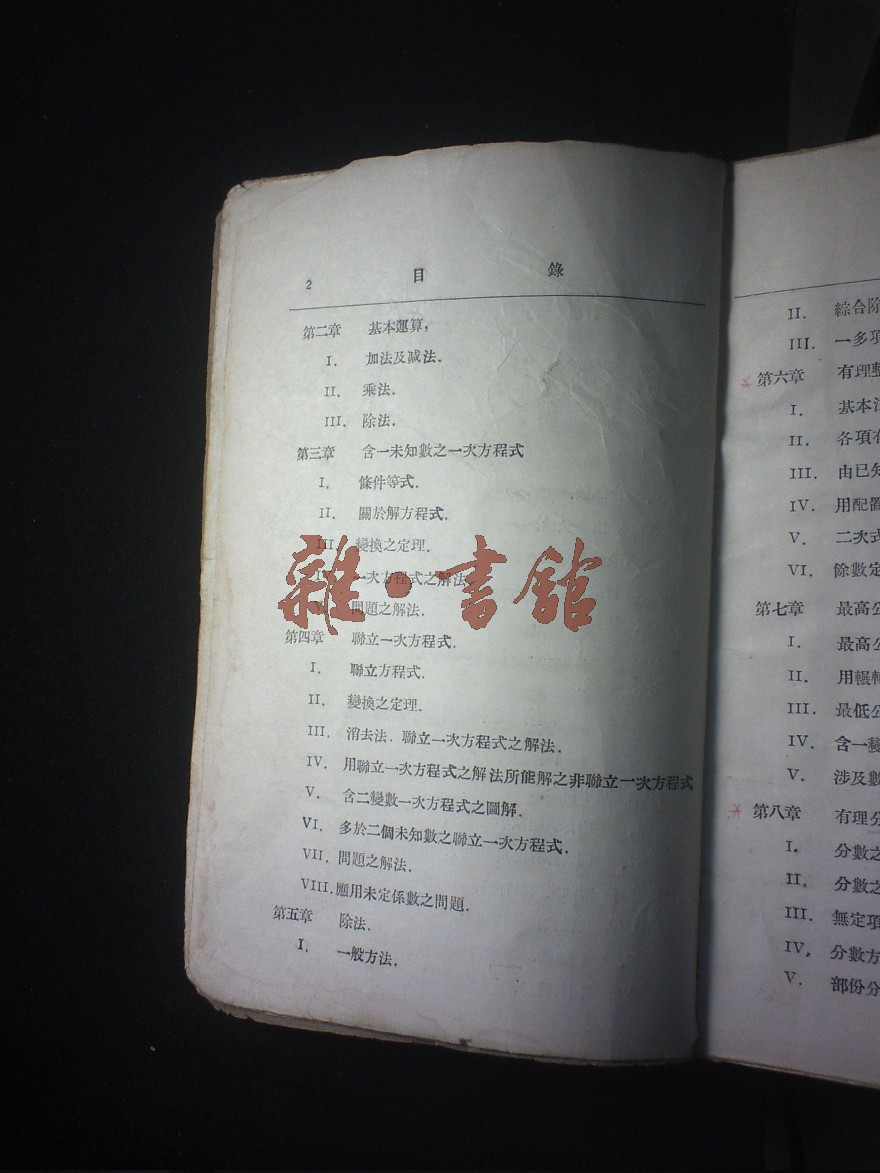 2 目 錄
第二章 基本運算,
I. 加法及减法.
II. 乘法.
III. 除法.
第三章 含一未知數之一次方程式
I. 條件等式.
II. 關於解方程式.
III. 變換之定理.
IV. 一次方程式之解法.
V. 問題之解法.
第四章 聯立一次方程式.
I. 聯立方程式.
II. 變換之定理.
III. 消去法. 聯立一次方程式之解法.
IV. 用聯立一次方程式之解法所能解之非聯立一次方程式
V. 含二變數一次方程式之圖解.
VI. 多於二個未知數之聯立一次方程式.
VII. 問題之解法.
VIII. 應用未定係數之問題.
第五章 除法.
I. 一般方法.
雜·書館
II. 綜合除
III. 一多項
第六章 有理整
I. 基本
II. 各項
III. 由已知
IV. 用配置
V. 二次式
VI. 餘數定
第七章 最高公
I. 最高公
II. 用輾
III. 最低公
IV. 含一變
V. 涉及數
第八章 有理分
I. 分數之
II. 分數之
III. 無定項
IV. 分數方
V. 部份分